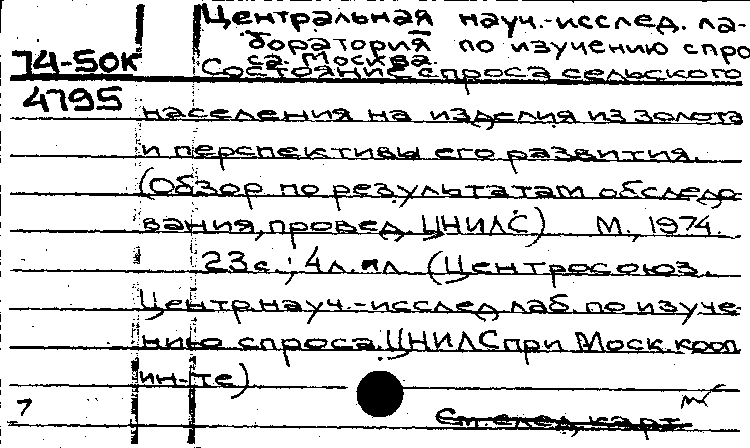 Центральная науч.-исслед. ла-
боратория по изучению спро
са. Москва.
74-50к
Состояние спроса сельского
4795
населения на изделия из золота
и перспективы его развития.
(Обзор по результатам обследо-
вания, провед. ЦНИЛС) М., 1974.
23 с.; 4 л. ил. (Центросоюз.
Центр. науч.-исслед. лаб. по изуче-
нию спроса. ЦНИЛС при Моск. кооп.
ин-те)
7
См. след. карт